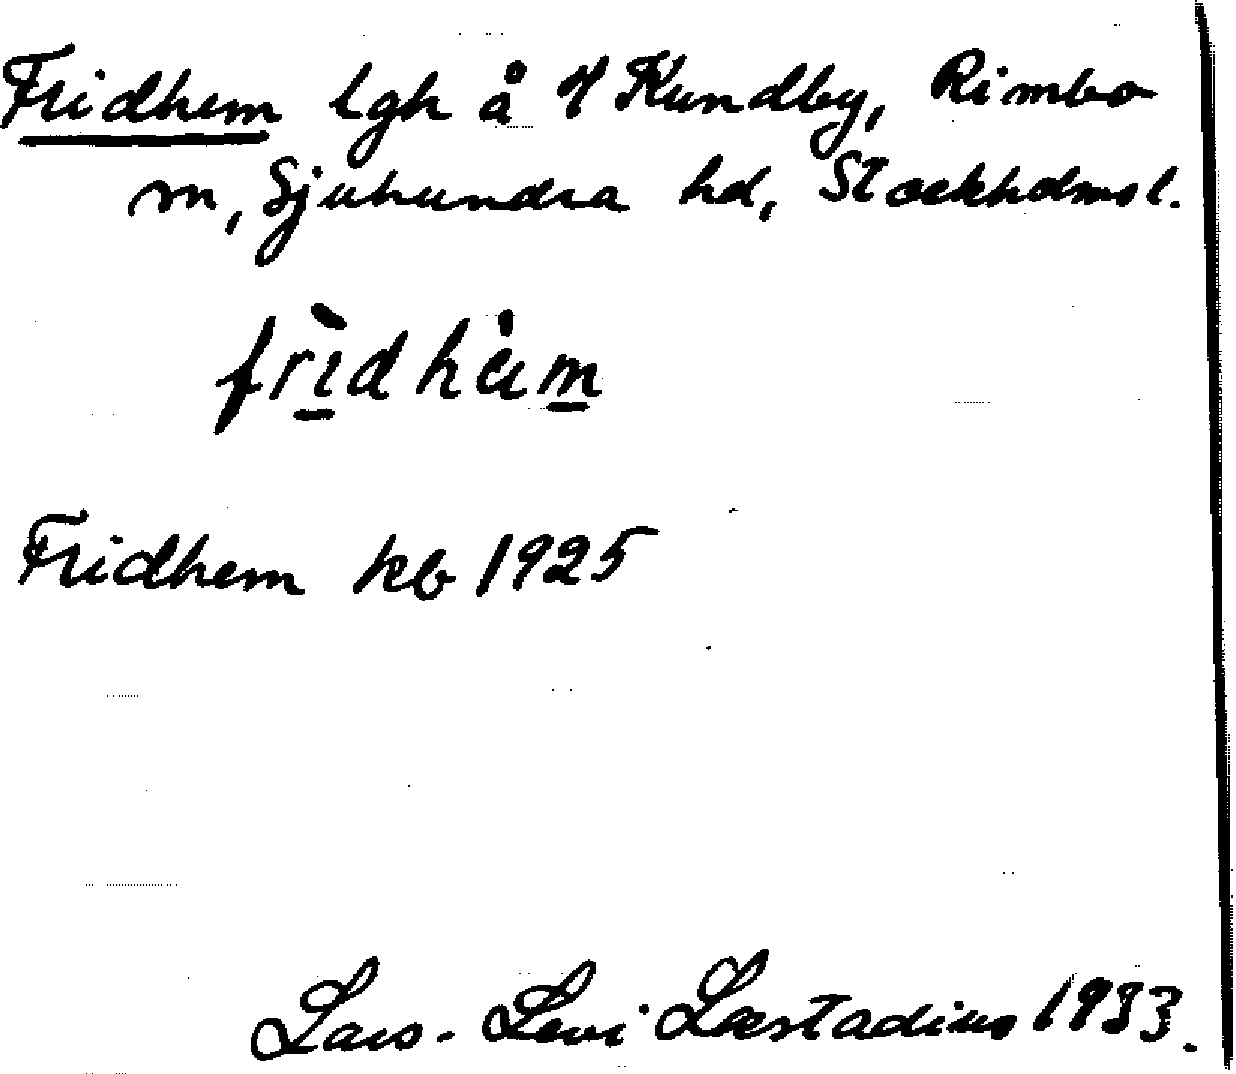 Fridhem lgh å V Kundby, Rimbo
sn, Sjuhundra hd, Stockholms l.
frìdhèm
Fridhem kb 1925
Lars-Levi Læstadius 1933.